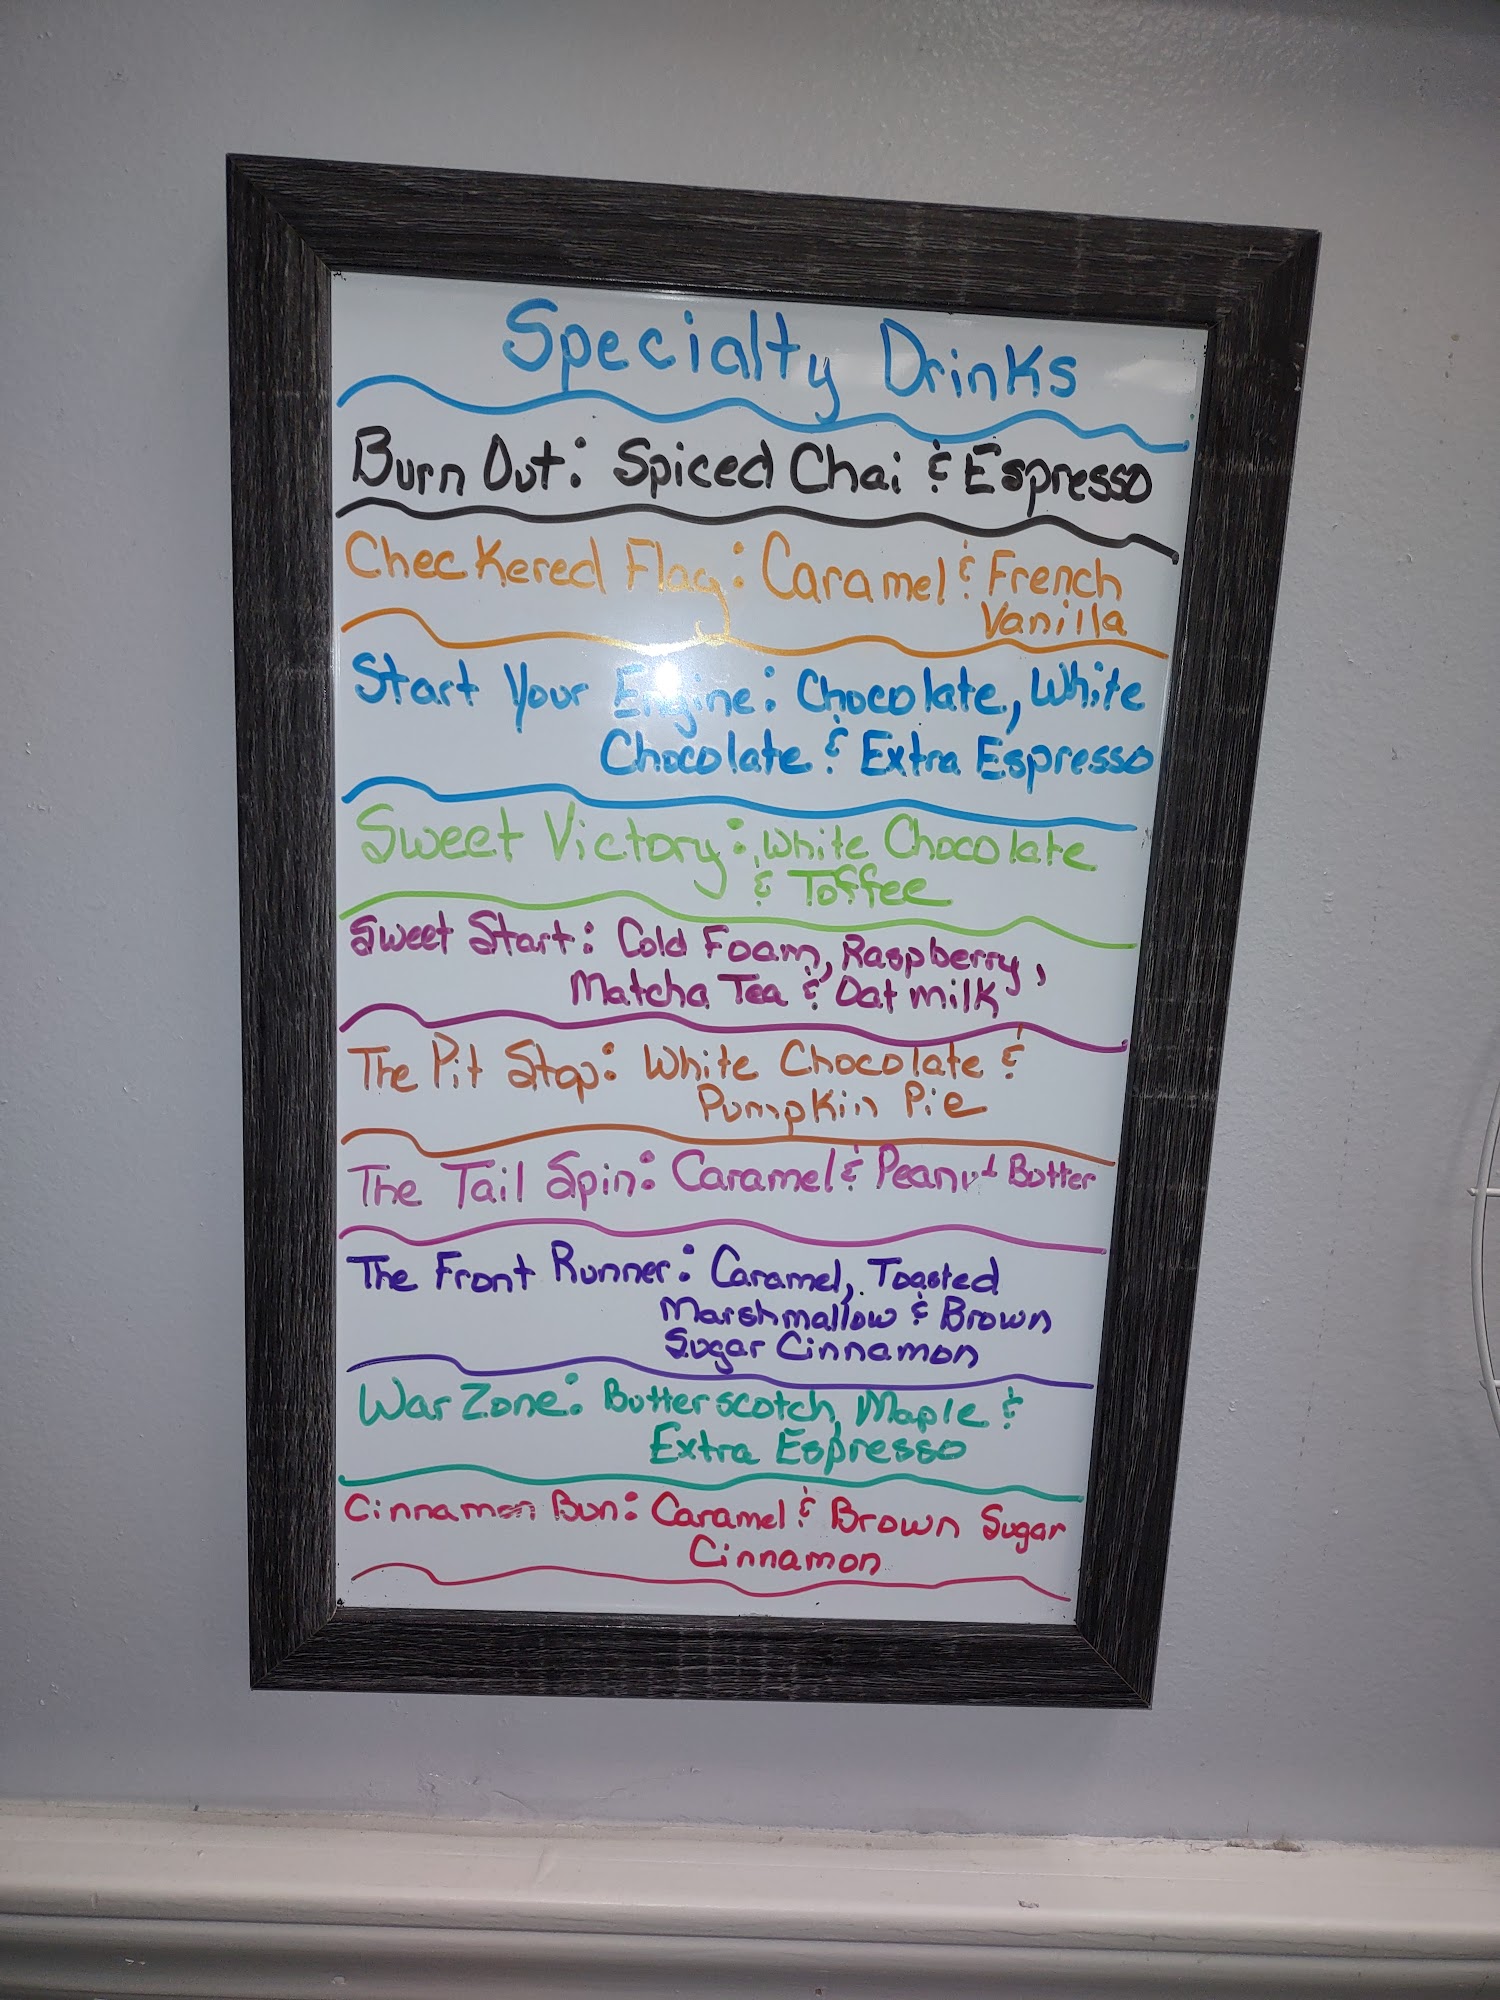 Specialty Drinks
Burn Out: Spiced Chai & Espresso
Checkered Flag: Caramel & French
Vanilla
Start Your Engine: Chocolate, White
Chocolate & Extra Espresso
Sweet Victory: White Chocolate
& Toffee
Sweet Start: Cold Foam, Raspberry,
Matcha Tea & Oat milk
The Pit Stop: White Chocolate &
Pumpkin Pie
The Tail Spin: Caramel & Peanut Butter
The Front Runner: Caramel, Toasted
Marshmallow & Brown
Sugar Cinnamon
War Zone: Butterscotch, Maple &
Extra Espresso
Cinnamon Bun: Caramel & Brown Sugar
Cinnamon